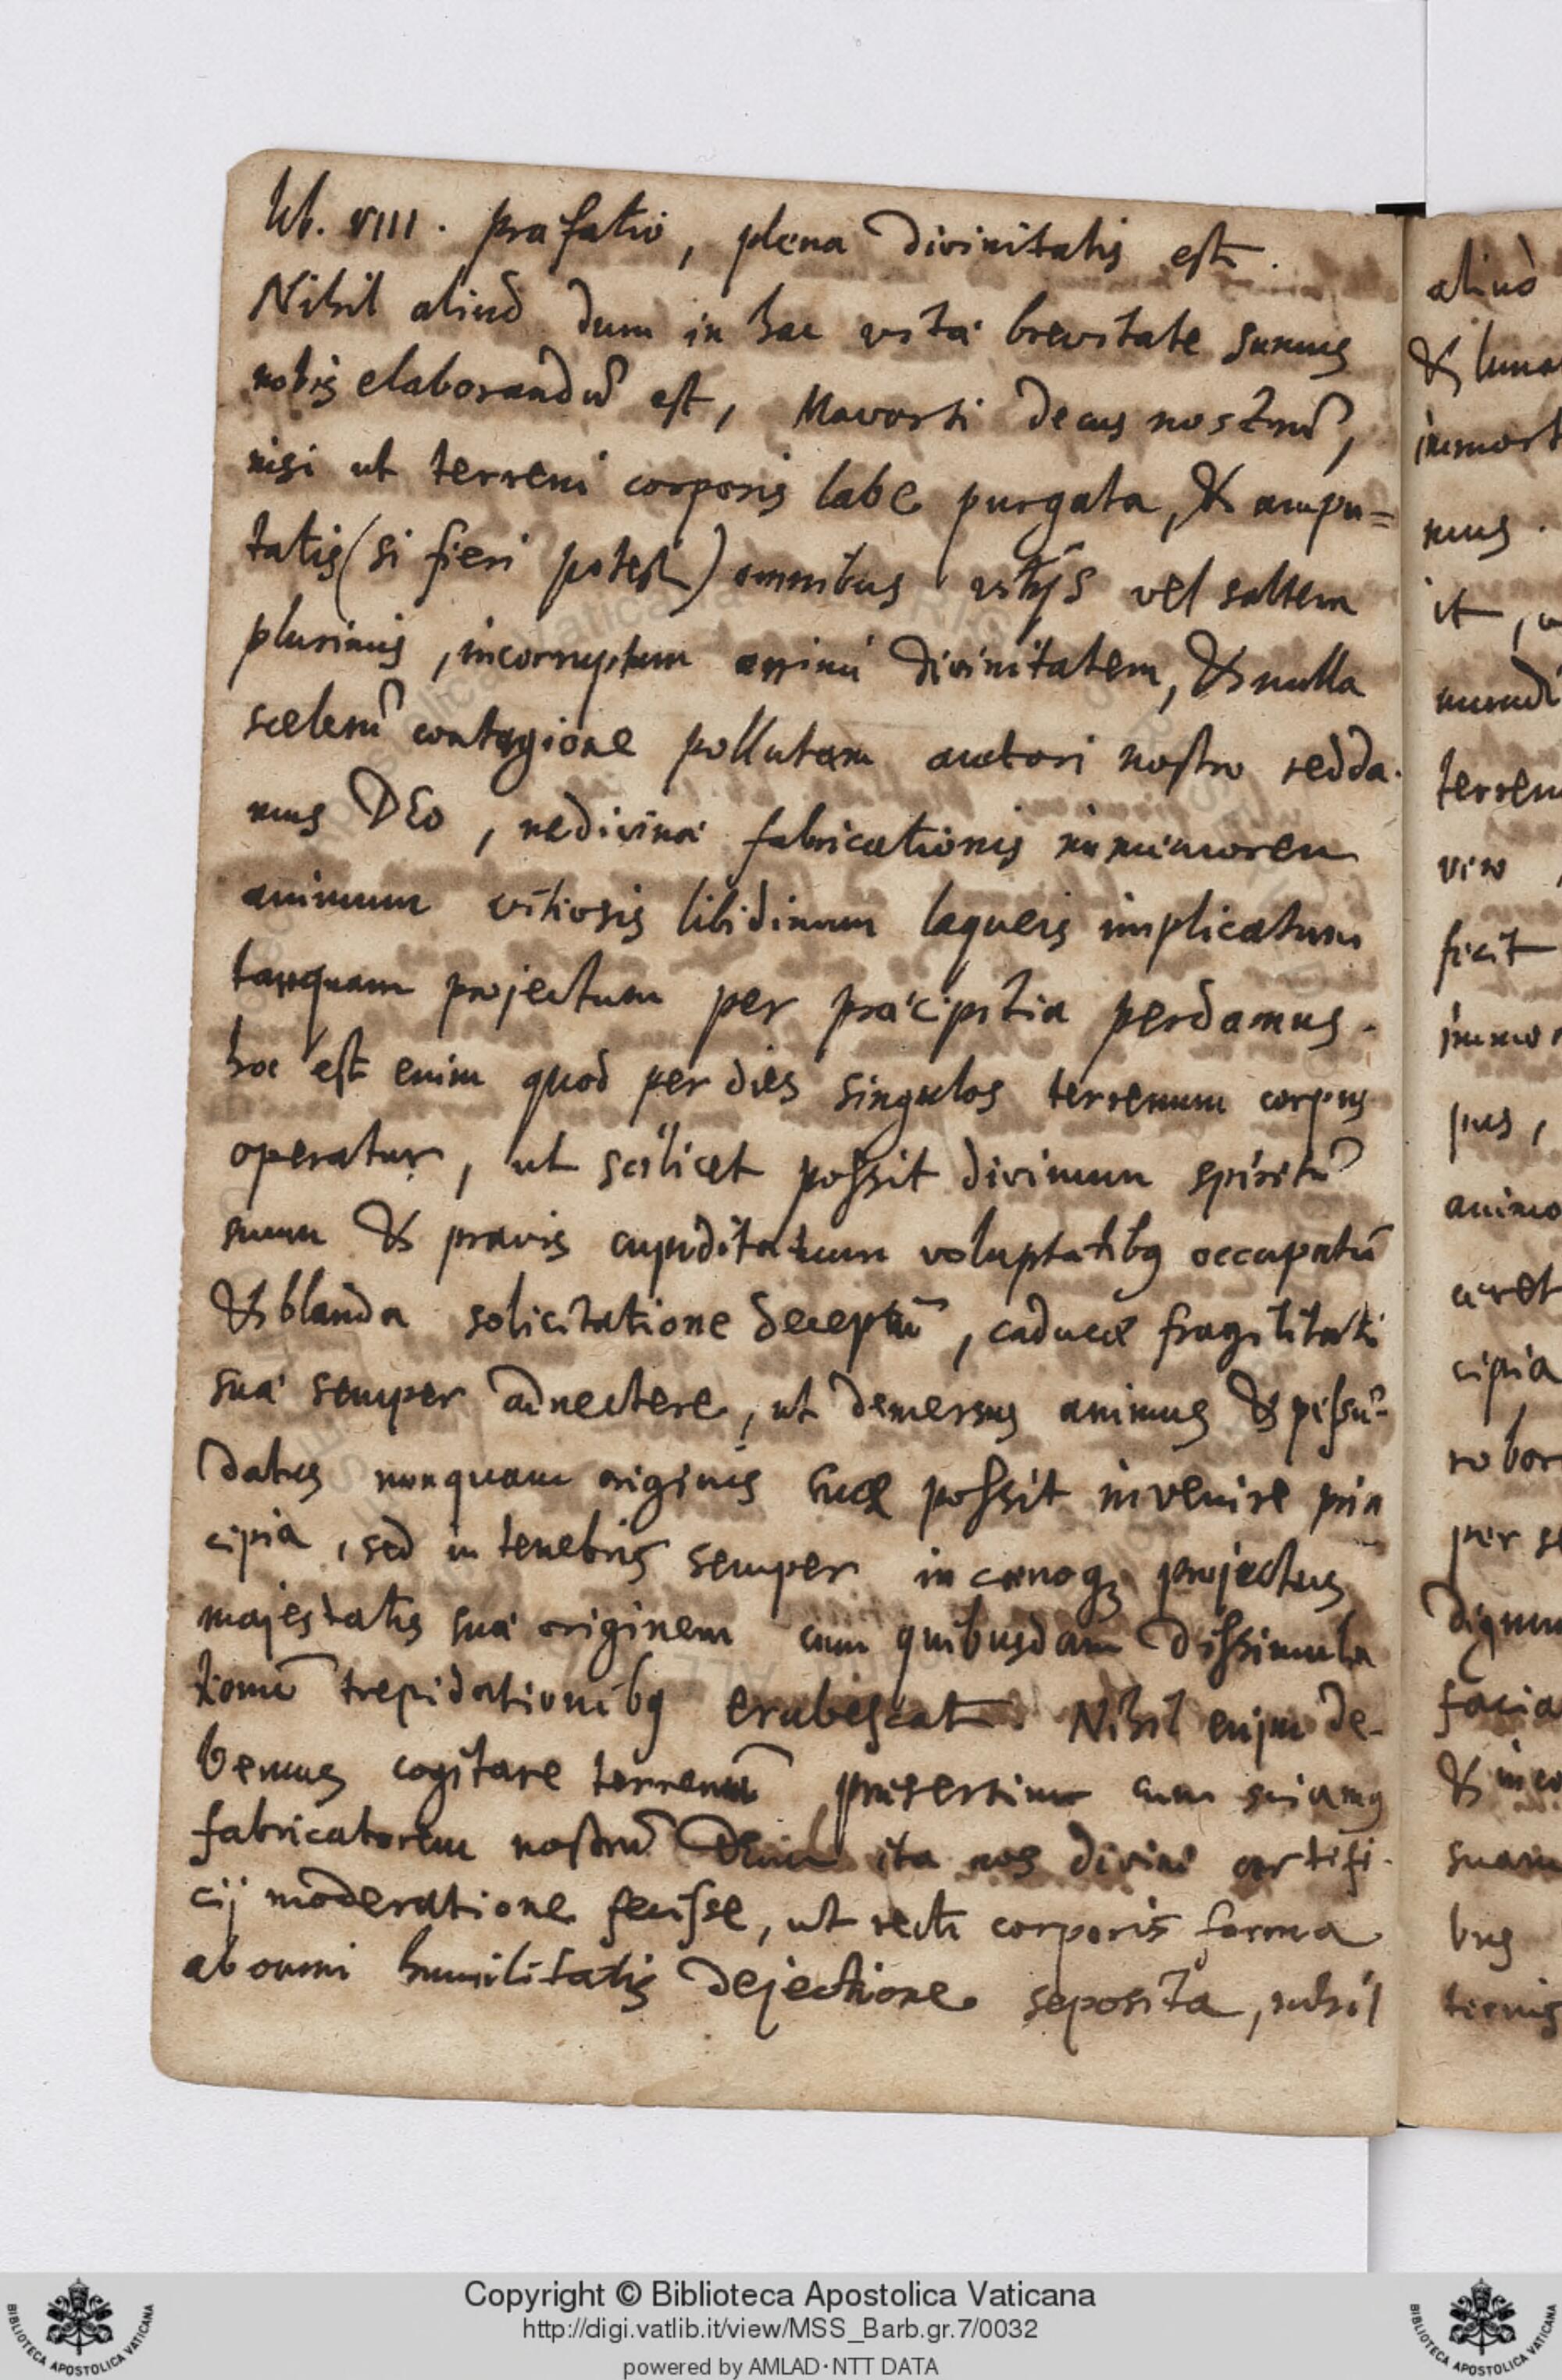 lib. VIII. præfatio, plena divinitatis est.
Nihil aliud dum in hac vitæ brevitate sumus
nobis elaborandũ est, Mavorti decus nostrũ,
nisi ut terreni corporis labe purgata, & ampu=
tatis (si fieri potest) omnibus vitijs vel saltem
plurimis, incorruptam animi divinitatem, & nulla
scelerũ contagione pollutam auctori nostro redda-
mus DEo, ne divinæ fabricationis immemorem
animum vitiosis libidinum laqueis implicatum
tanquam projectum per præcipitia perdamus.
hoc est enim quod per dies singulos terrenum corpus
operatur, ut scilicet possit divinum spiritũ
suum & pravis cupiditatum voluptatibq occupatũ
& blanda solicitatione deceptũ, caducæ fragilitati
suæ semper adnectere, ut demersus animus & pessũ-
datus nunquam originis suæ possit invenire prin
cipia, sed in tenebris semper in cœnoq; projectus
majestatis suæ originem cum quibusdam dissimula
tionũ trepidationibq erubescat. Nihil enim de-
bemus cogitare terrenũ præsertim cum sciamq
fabricatorem nostrũ Deum ita nos divini artifi-
cij moderatione fecisse, ut recti corporis forma
ab omni humilitatis dejectione seposita, nihil
aliud
& luna
immort
mus.
it,
mundi
terren
vero
ficit
immor
pus,
animo
cipia
robor
per se
dignum
facia
& inco
suam
bus
ternis
Copyright © Biblioteca Apostolica Vaticana
http://digi.vatlib.it/view/MSS_Barb.gr.7/0032
powered by AMLAD·NTT DATA
BIBLIOTECA APOSTOLICA VATICANA
BIBLIOTECA APOSTOLICA VATICANA